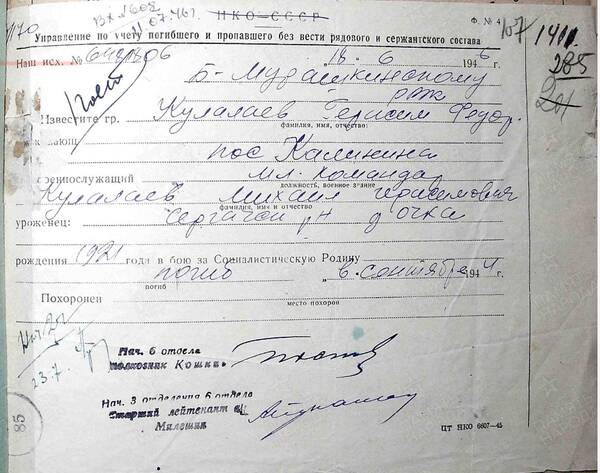 Вх № 602
11 07.46г.
НКО—СССР
Ф. № 4
107 1411
285
201
Управление по учету погибшего и пропавшего без вести рядового и сержантского состава
Наш исх. № 18 6 1946 г.
Б-Мурашкинскому
рвк
Известите гр. Кулалаев Герасим Федор.
фамилия, имя, отчество
пос Калинина
военнослужащий мл. командир
должность, военное звание
Кулалаев Михаил Герасимович
фамилия, имя и отчество
уроженец: Сергачск рн д Очка
рождения 1921 года в бою за Социалистическую Родину
погиб „6 сентября 194 г.
погиб
Похоронен
место похорон
23.7
Нач. 6 отдела
полковник Кошки
Нач. 3 отделения 6 отдела
Старший лейтенант а/с
Милешин
85
ЦТ НКО 6607—45